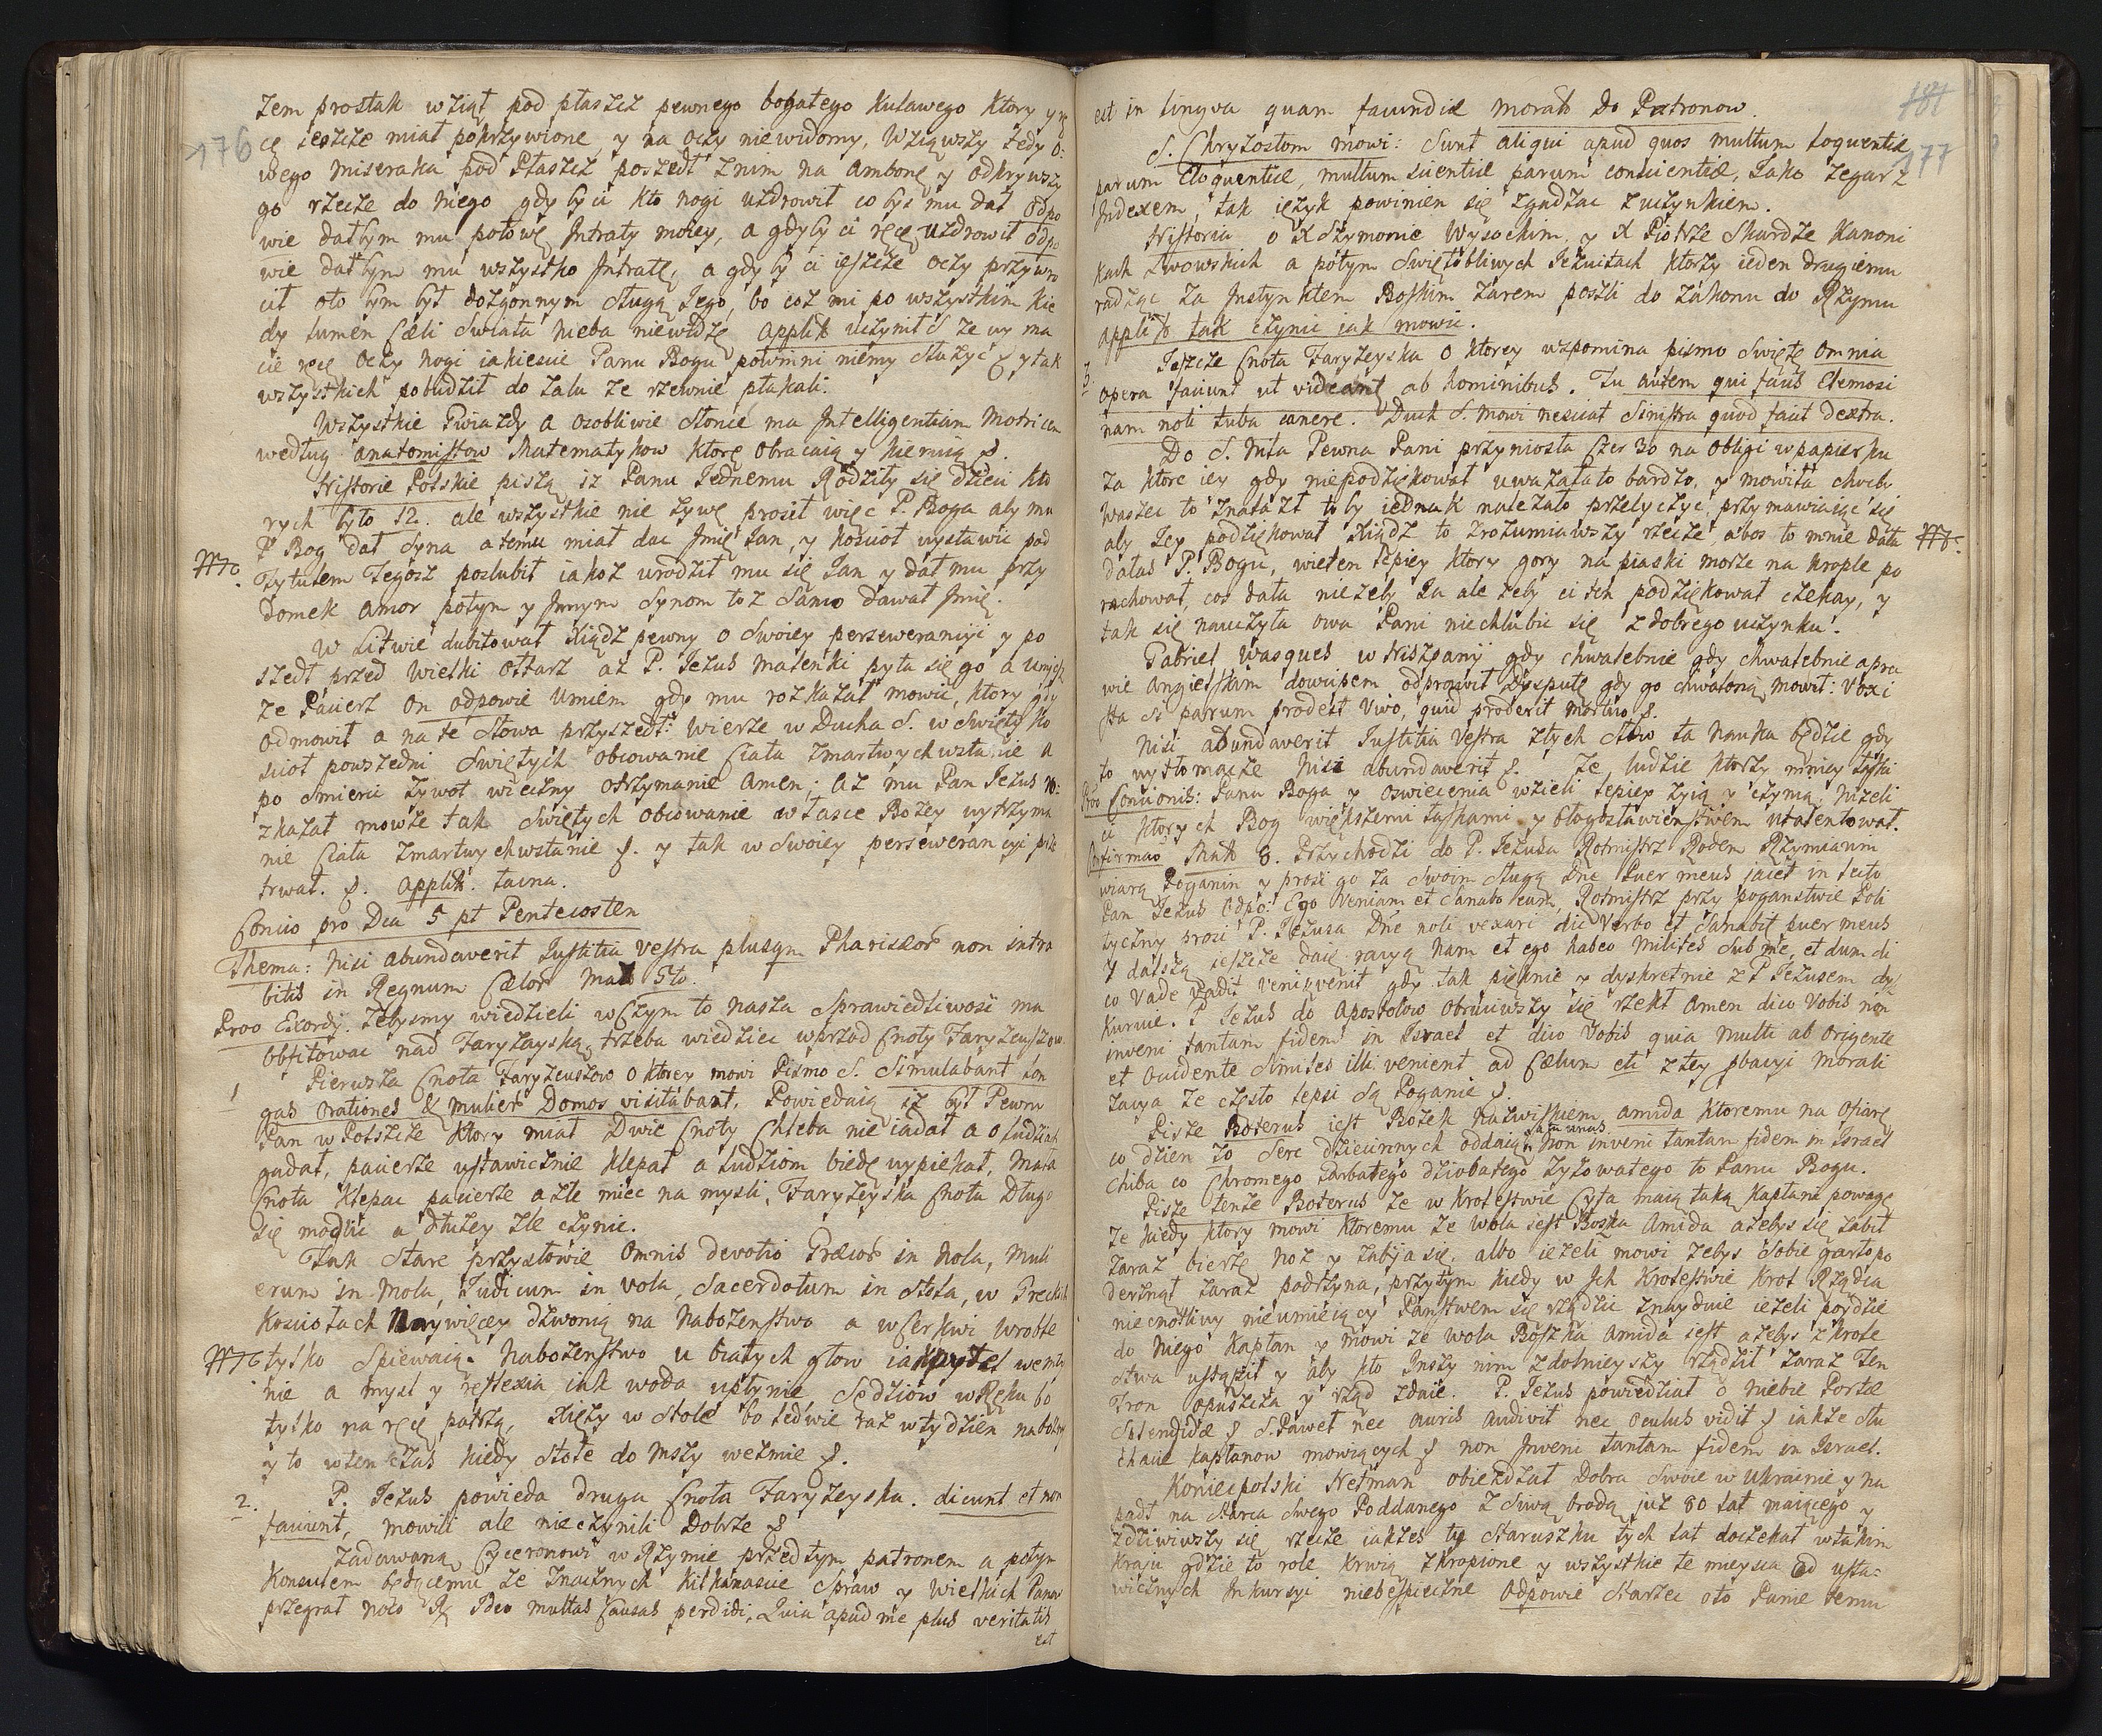 176
zem prostak wziął pod płaszcz pewnego bogatego kulawego ktory y rę
cę ieszcze miał pokrzywione, y na oczy niewidomy, Wziąwszy tedy o:
wego miseraka pod Płaszcz poszedł znim na ambonę y odkrywszy
go rzecze do niego gdy by ci kto nogi uzdrowił co byś mu dał odpo
wie dałbym mu połowę Intraty moiey, a gdyby ci ręcę uzdrowił odpo
wie dałbym mu wszystko Intratę, a gdy by ci ieszcze oczy przywro
cił oto bym był dozgonnym sługą Jego, bo coż mi po wszystkim kie
dy lumen Cæli Swiatła nieba niewidzę applik uczynił S ze wy ma
cie ręcę oczy nogi iakiescie Panu Bogu powinni niemy służyć y tak
wszystkich pobudził do zalu ze rzewnie płakali.
Wszystkie Gwiazdy a osobliwie słonce ma Intelligentiam Motricem
według anatomistow Matematykow ktore obracaią y kieruią &.
Historie Polskie piszą iz Panu Jednemu Rodziły się dzieci kto
rych było 12. ale wszystkie nie zywe prosił więc P. Boga aby mu
P Bog dał Syna a temu miał dac Jmię Jan, y koscioł wystawic pod
Tytułem Tegosz poslubił iakoż urodził mu się Jan y dał mu przy
domek amor potym y Jnnym Synom toz Samo dawał Jmię.
W Litwie dubitował Xiądz pewny o Swoiey perseweranciyi y po
szedł przed Wielki ołtarz az P. Jezus malenki pyta się go a umiesz
ze Pacierz on odpowie Umiem gdy mu rozkazał mowic, ktory gdy
odmowił a na te Słowa przyszedł: Wierze w Ducha S. w Swięty ko
scioł powszedni Swiętych obcowanie Ciała zmartwychwstanie a
po smierci zywot wieczny otrzymanie Amen; az mu Pan Jezus ro:
zkazał mowze tak Swiętych obcowanie w łasce Bozey wytrzyma
nie Ciała zmartwychwstanie &. y tak w Swoiey perseweranciyi prze
trwał. &. applik. tacna.
Concio pro Dca 5 pt Pentecosten
Thema: Nisi abundaverit Justitia Vestra plusqm Phariseor non intra
bitis in Regnum Cælor Mat 5to.
Proo Exordÿ. Zebysmy wiedzieli w czym to nasza Sprawiedliwość ma
obfitowac nad Faryzayską, trzeba wiedziec wprzod Cnoty Faryzeuszow.
1 Pierwsza Cnota Faryzeuszow o ktorey mowi Pismo S. Simulabant lon
gas orationes & mulier Domos visitabant. Powiedaią iz był Pewny
Pan w Polszcze ktory miał Dwie Cnoty Chleba nie iadał a o ludziach
gadał, pacierze ustawicznie klepał a ludziom biedę wypiekał, Mała
Cnota klepac pacierze a złe miec na mysli, Faryzeyska Cnota Długo
się modlic a dłuzey zle czynic.
Tak stare przysłowie omnis devotio Græcor in Nola, Muli
erum in Mola, Judicum in vola, Sacerdotum in Stola, w Greckich
kosciołach Naywięcey dzwonią na Nabozenstwo a w Cerkwi wroble
tylko spiewaią. Nabozenstwo u białych głow iak
nie a mysl y reflexia iak woda upłynie Sędziow w Ręku bo
tylko na ręcę patrzą, Xięzy w Stole bo ledwie raz w tydzien nabozny
y to wten czas kiedy stołe do Mszy wezmie &.
2. P. Jezus powieda druga Cnota Faryzeyska. dicunt et non
faciunt, mowili ale nie czynili Dobrze &
Zadawaną Cyceronowi w Rzymie przedtym patronem a potym
Konsulem będącemu ze znacznych kilkanascie Spraw y Wielkich Panow
przegrał Ideo multas Causas perdidi, Quia apud me plus veritatis
est
181
177
est in lingva quam facundiæ morali Do Patronow.
S. Chryzostom mowi: Sunt aliqui apud quos multum loquentiæ
parum Eloquentiæ, multum scientiæ parum conscientiæ, Jako zegarz
Indexem, tak ięzyk powinien się zgadzac zuczynkiem.
Historia o X Szymonie Wysockim, y X Piotrze Skardze Kanoni
kach Lwowskich a potym Swiętobliwych Jezuitach ktorzy ieden drugiemu
radząc za Instynktem Boskim zarem poszli do zakonu do Rzymu
applik tak czynic jak mowic.
3. Jeszcze Cnota Faryzeyska o ktorey wspomina pismo swięte omnia
opera faciunt ut videant ab hominibus. Tu autem qui facis Elemosi
nam noli tuba canere. Duch S. mowi nesciat Sinistra quod faciat Dextra.
Do S. Nita Pewna Pani przyniosła Czer 30 na obligi w papierku
za ktore iey gdy niepodziękował uwazała to bardzo, y mowiła chocby
Waszec to znalazł toby iednak nalezało przeliczyc przymawiaiąc się
aby Jey podziękował Xiądz to zrozumiawszy rzecze abos to mnie dała
dałas P. Bogu, wie ten lepiey ktory gory na piaski morze na krople po
rachował, cos dała niezeby Ja ale zeby ci ten podziękował czekay, y
tak się nauczyła owa Pani niechlubic się zdobrego uczynku.
Gabriel Wasques w Hiszpanij gdy chwalebnie gdy chwalebnie apra
wie angielskim dowcipem odprawił dysputę gdy go chwalono mowił: Vox i
sta Si parum prodest Vivo, quid proderit mortuo &.
Nisi abundaverit Justitia Vestra ztych słow ta nauka będzie gdy
to wytłomaczę Nisi abundaverit &. ze ludzie ktorzy mniey łaski
Proo Concionis: Pana Boga y oswiecenia wzieli lepiey zyią y czynią. Nizeli
ci ktorych Bog większemi łaskami y błogosławienstwem utalentował.
Confirmao Math 8. Przychodzi do P. Jezusa Rotmistrz Rodem Rzymianin
wiarą Poganin y prosi go za swoim sługą Dne Puer meus jacet in lecto
Pan Jezus odpo: Ego Veniam et Sanabo eum, Rotmistrz przy poganstwie Poli
tyczny prosi P. Jezusa Dne noli vexari dic Verbo et Sanabit puer meus
y dalszą ieszcze daie racyą Nam et ego habeo Milites Sub me, et dum di
co Vade Vadit veni venit gdy tak pięknie y dyskretnie z P Jezusem dys
kuruie. P. Jezus do Apostołow obruciwszy się rzekł Amen dico Vobis non
inveni tantam fidem in Israel et dico Vobis quia Multi ab Origente
et Occidente Similes illi venient ad Cælum eti z tey Morali
zacya ze często lepsi są Poganie &.
Pisze Boterus iest Bozek Nazwiskiem Amida ktoremu na ofiarę
co dzien 20 serc dziecinnych oddaią, non inveni tantam fidem in Israel
chiba co Chromego Garbatego dziobatego zyzowatego to Panu Bogu.
Pisze tenze Boterus ze w krolestwie Cyta maią taką kapłani powagę
ze kiedy ktory mowi ktoremu ze wola iest Boska Amida azebys się zabił
zaraz bierze noz y zabija się, albo iezeli mowi zebys sobie gardło po
derznął zaraz podrzyna, przytym kiedy w Jch krolestwie krol Rządca
niecnotliwy nieumieiący Panstwem się rządzic znaydzie iezeli poydzie
do niego kapłan y mowi ze wola Boszka Amida iest azebys z krole
stwa ustąpił y aby kto Jnszy nim zdolnieyszy rządził zaraz ten
Tron opuszcza y rząd zdaie. P. Jezus powiedział o niebie Portæ
Splendidæ & S. Paweł nec auris audivit nec oculus vidit & iakze słu
chacie kapłanow mowiących & non Inveni tantam fidem in Israel.
Koniecpolski Hetman obiezdzał Dobra Swoie w Ukrainie y na
padł na starca swego Poddanego z Siwą brodą już 80 lat maiącego y
zdziwiwszy się rzecze iakżes ty Staruszku tych lat doczekał wtakim
kraju gdzie to role krwią zkropione y wszystkie te mieysca od usta:
wicznych Inkursyi niebespieczne odpowie Starzec oto Panie temu